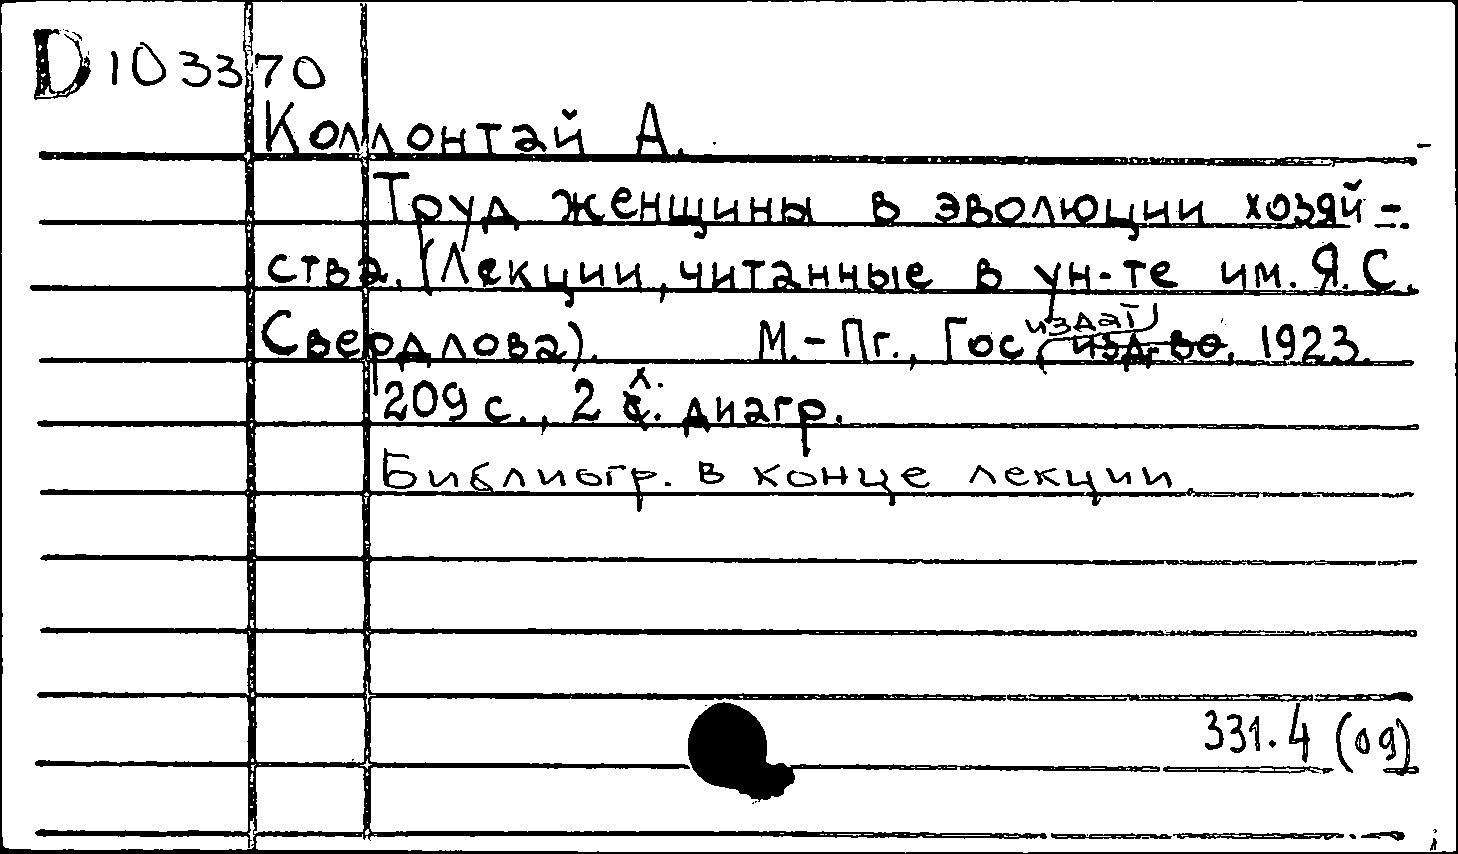 D 103370
Коллонтай А.
Труд женщины в эволюции хозяй-
ства. (Лекции, читанные в ун-те им. Я.С.
Свердлова). М.-Пг., Гос издат, 1923.
209 с., 2 л. диагр.
Библиогр. в конце лекции.
331.4 (09)